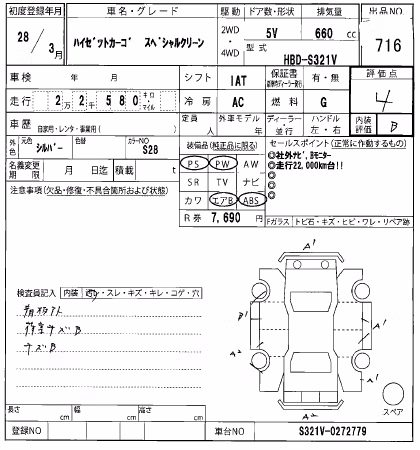 初度登録年月 車名・グレード 駆動 ドア数・形状 排気量 出品NO
28 / 3月 ハイゼットカーゴ スペシャルクリーン 2WD 4WD 5V 660 cc 716
型式 HBD-S321V
車検 年 月 シフト IAT 保証書 有・無 評価点
走行 2万2千580 キロ・マイル 冷房 AC 燃料 G 4
車歴 自家用・レンタ・事業用( ) 定員 人 外車モデル 年 ディーラー・並行 ハンドル 左・右 内装評価 B
外色 元色 シルバー 色替 カラーNO S28
装備品(純正品に限る)
セールスポイント(正常に動作するもの)
名義変更期限 月 日迄 積載 t
PS PW AW
SR TV ナビ
カワ エアB ABS
◎社外ナビ、Bモニター
◎走行22,000km台!!
◎
◎
◎
注意事項(欠品・修復・不具合箇所および状態)
R券 7,690 円
Fガラス トビ石・キズ・ヒビ・ワレ・リペア跡
検査員記入 内装 スレ・キズ・キレ・コゲ・穴
キズB
A'
B'
A'
A2
A'
A2
スペア
長さ cm 幅 cm 高さ cm
登録NO 車台NO S321V-0272779